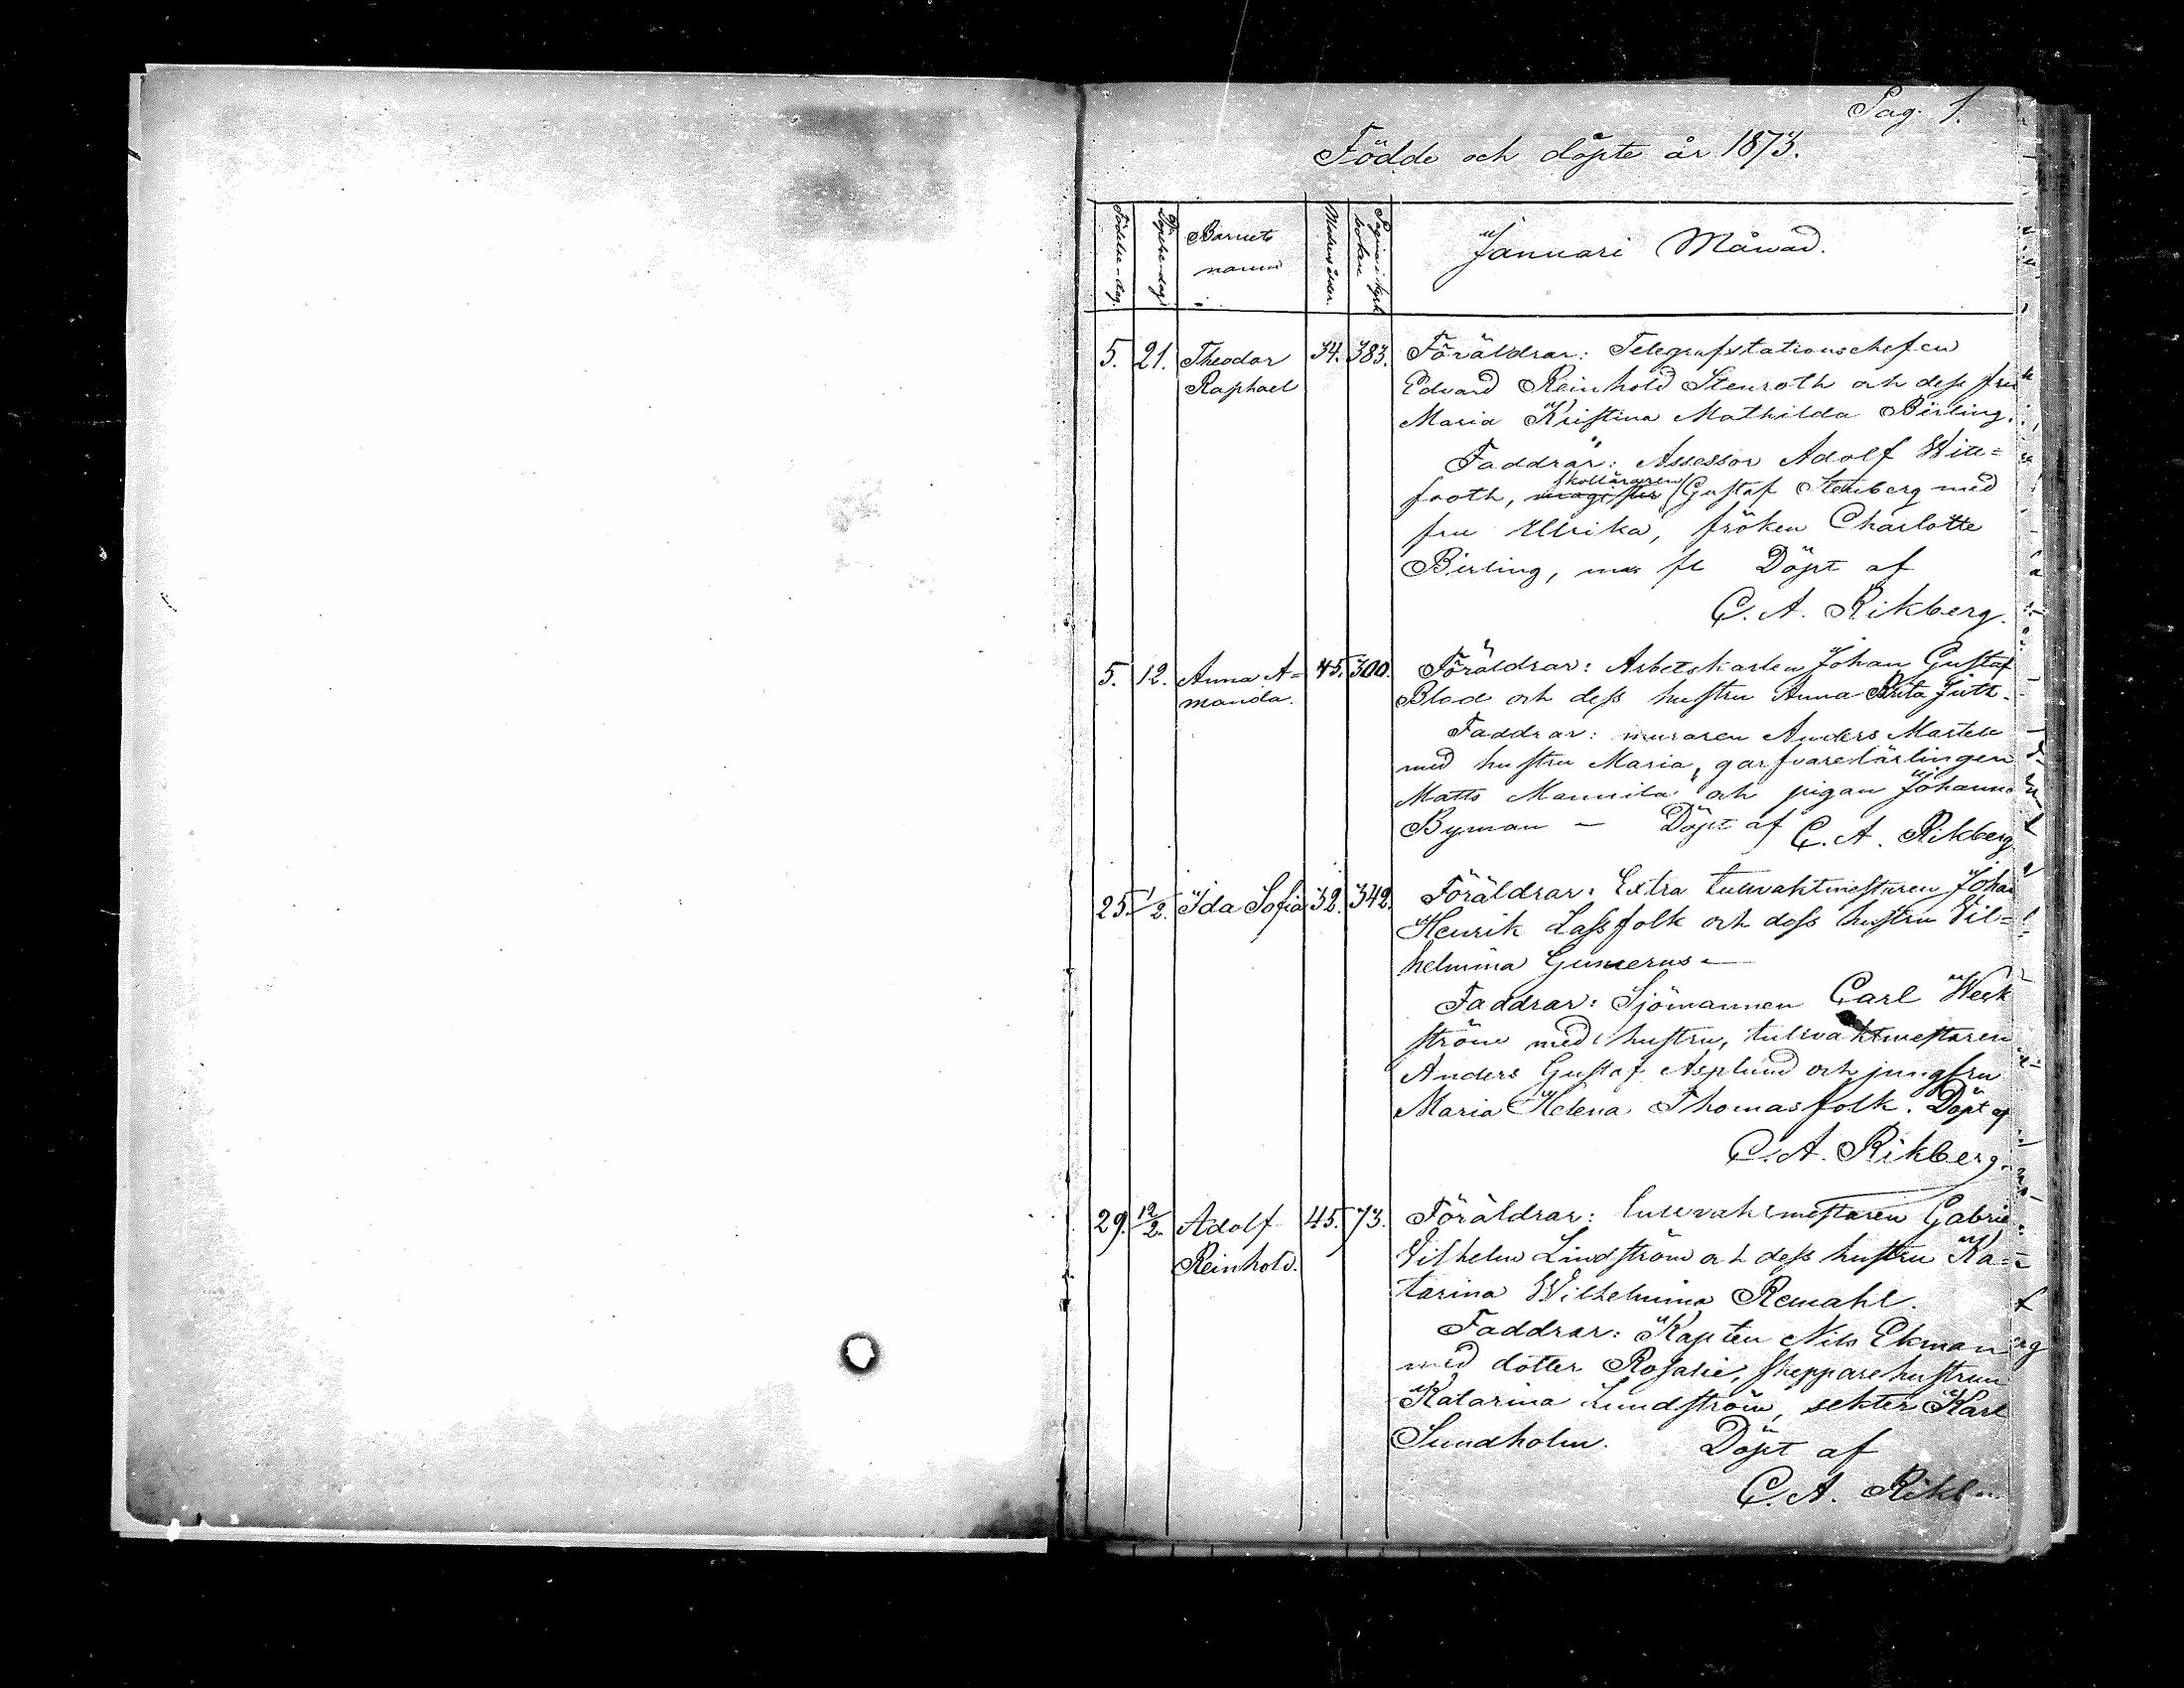 Pag. 1.
Födde och döpte år 1873.
Födelse-dag.
Döpelse-dag.
Barnets
namn
Modrens ålder.
Pagina i kyrk
boken
Januari Månad.
5. 21. Theodor 34. 383. Föräldrar: Telegrafstationschefen
Raphael Edvard Reinhold Stenroth och dess fru
Maria Kristina Mathilda Birling.
Faddrar: Assessor Adolf Witt=
skolläraren
footh, magister Gustaf Stenberg med
fru Ulrika, fröken Charlotte
Birling, m fl Döpt af
C. A. Rikberg.
5. 12. Anna A= 45. 300. Föräldrar: Arbetskarlen Johan Gustaf
manda. Blad och dess hustru Anna Brita
Faddrar: muraren Anders Martell
med hustru Maria, garfvarelärlingen
Matts Mannila och pigan Johanna
Byman — Döpt af C. A. Rikberg
25. 1/2. Ida Sofia 32. 342. Föräldrar: Extra tullvaktmestaren Johan
Henrik Lassfolk och dess hustru Vil=
helmina
Faddrar: Sjömannen Carl Weck
ström med hustru, tullvaktmestaren
Anders Gustaf Asplund och jungfru
Maria Helena Thomasfolk. Döpt af
C. A. Rikberg.
29. 12/2. Adolf 45. 73. Föräldrar: tullvaktmestaren Gabriel
Reinhold. Vilhelm Lindström och dess hustru Ka=
tarina Wilhelmina Remahl.
Faddrar: Kapten Nils Ekman
med dotter Rosalie, skepparehustrun
Katarina Lundström, sekter Karl
Sundholm. Döpt af
C. A. Rikb